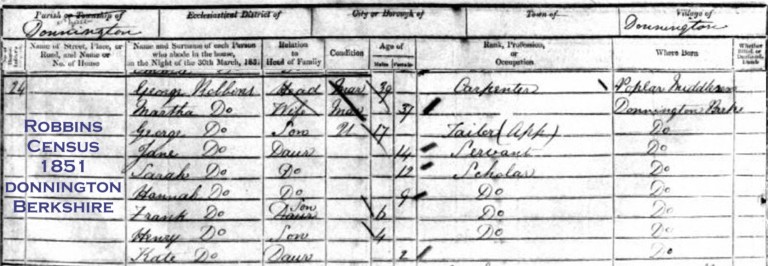 Parish or Township of Ecclesiastical District of City or Borough of Town of Village of
Donnington Donnington
Name of Street, Place, or Road, and Name or No. of House Name and Surname of each Person who abode in the house, on the Night of the 30th March, 1851 Relation to Head of Family Condition Age of Males Females Rank, Profession, or Occupation Where Born Whether Blind, or Deaf-and-Dumb
24 George Robbins Head Mar 39 Carpenter Poplar Middlesex
Martha Do Wife Mar 37 Donnington Berks
George Do Son 17 Tailer (App) Do
Jane Do Daur 14 Servant Do
Sarah Do Do 12 Scholar Do
Hannah Do Do 9 Do Do
Frank Do Son Daur 6 Do Do
Henry Do Son 4 Do Do
Kate Do Daur 2 Do
Robbins
Census
1851
donnington
Berkshire